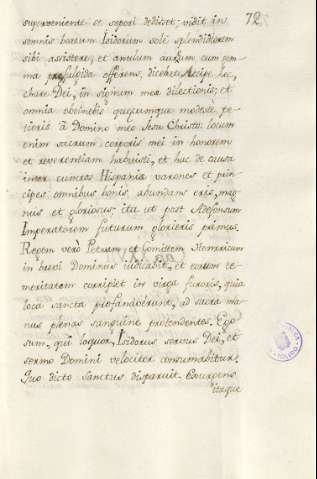 72
superveniente se sopori dedisset: vidit in
somnis beatum Isidorum sole splendidiorem
sibi assistere, et anulum aureum cum gem-
ma præfulgida offerens, diceret: Accipe hoc,
chare Dei, in signum mea dilectionis, et
omnia obtinebis quæcumque modestè pe-
tieris à Domino meo Jesu Christo: locum
enim sacrum corporis mei in honorem
et reverentiam habuisti, et huc de causa
inter cunctos Hispania varones et prin-
cipes omnibus bonis abundans eris, mag-
nus et gloriosus: ita ut post Adefonsum
Imperatorem futurum glorieris primus.
Regem vero Petrum, et Comitem Henrricum
in brevi Dominus iudicabit, et eorum te-
meritatem corripiet in virga furoris, quia
loca sancta profanaverunt, ad sacra ma-
nus plenas sanguine protendentes. Ego
sum, qui loquor, Isidorus servus Dei, et
sermo Domini velociter consumabitur.
Quo dicto Sanctus disparuit. Exurgens
itaque